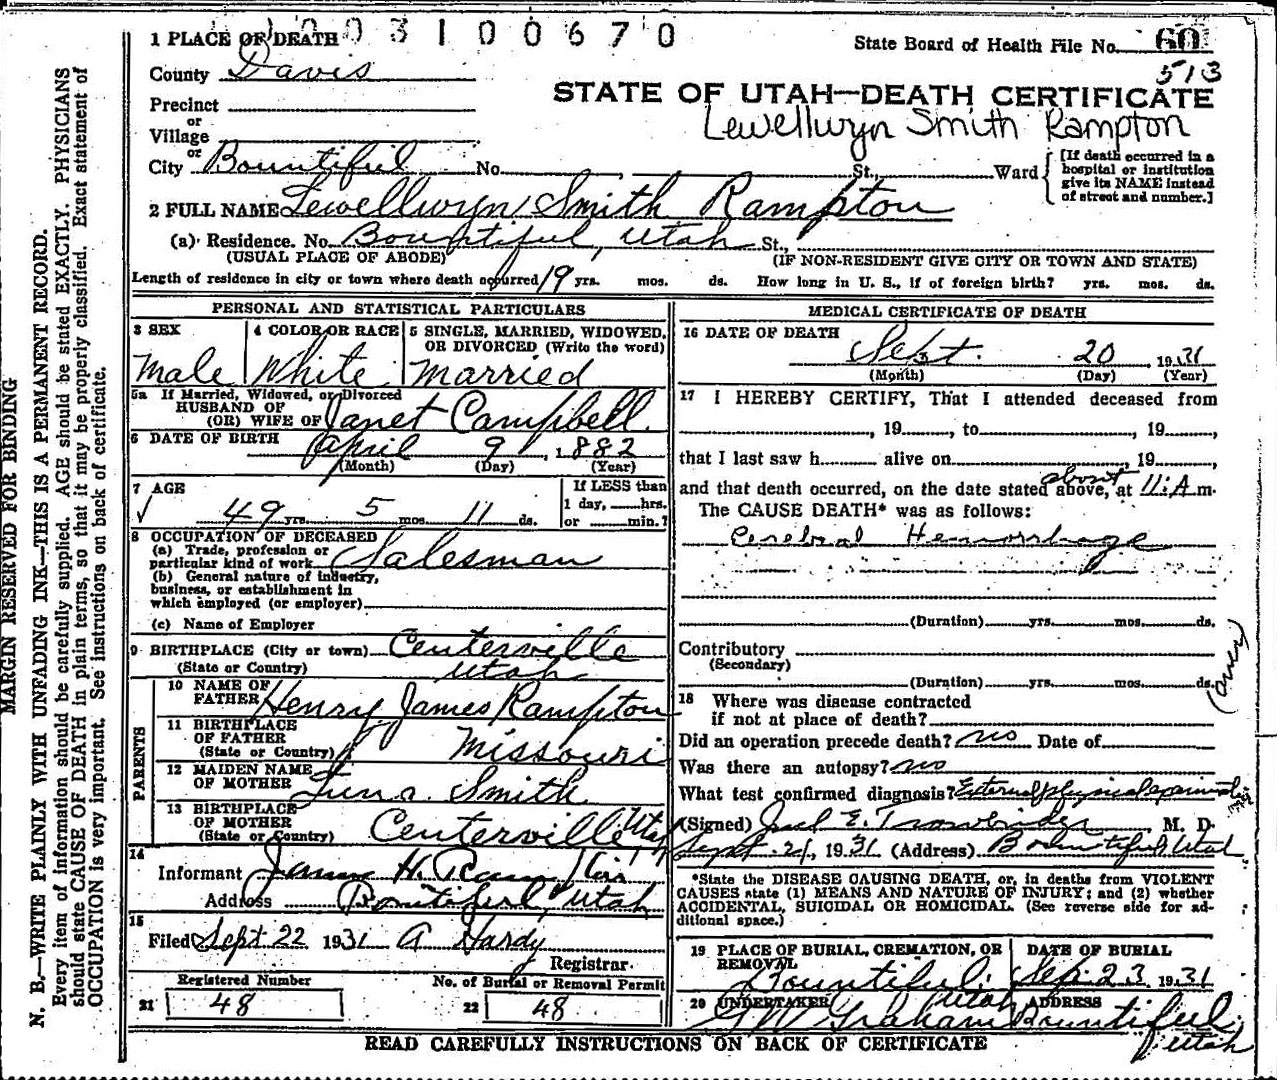 1003100670
1 PLACE OF DEATH
State Board of Health File No. 60
513
County Davis
STATE OF UTAH—DEATH CERTIFICATE
Lewellwyn Smith Rampton
Precinct
or
Village
or
City Bountiful No. St., Ward
[If death occurred in a
hospital or institution
give its NAME instead
of street and number.]
2 FULL NAME Lewellwyn Smith Rampton
(a) Residence. No. Bountiful, Utah St.,
(USUAL PLACE OF ABODE) (IF NON-RESIDENT GIVE CITY OR TOWN AND STATE)
Length of residence in city or town where death occurred 19 yrs. mos. ds. How long in U. S., if of foreign birth? yrs. mos. ds.
PERSONAL AND STATISTICAL PARTICULARS
3 SEX
Male
4 COLOR OR RACE
White
5 SINGLE, MARRIED, WIDOWED,
OR DIVORCED (Write the word)
Married
5a If Married, Widowed, or Divorced
HUSBAND OF
(OR) WIFE OF Janet Campbell
6 DATE OF BIRTH April 9, 1882
(Month) (Day) (Year)
7 AGE
49 yrs. 5 mos. 11 ds.
If LESS than
1 day, hrs.
or min.?
8 OCCUPATION OF DECEASED
(a) Trade, profession or
particular kind of work Salesman
(b) General nature of industry,
business, or establishment in
which employed (or employer)
(c) Name of Employer
9 BIRTHPLACE (City or town) Centerville
(State or Country) Utah
PARENTS
10 NAME OF
FATHER Henry James Rampton
11 BIRTHPLACE
OF FATHER
(State or Country) Missouri
12 MAIDEN NAME
OF MOTHER Smith
13 BIRTHPLACE
OF MOTHER
(State or Country) Centerville Utah
14
Informant James H. Rampton
Address Bountiful, Utah
15
Filed Sept 22 1931 A Hardy
Registrar.
Registered Number No. of Burial or Removal Permit
21 48 22 48
MEDICAL CERTIFICATE OF DEATH
16 DATE OF DEATH
Sept. 20 1931
(Month) (Day) (Year)
17 I HEREBY CERTIFY, That I attended deceased from
, 19 , to , 19 ,
that I last saw h alive on , 19 ,
and that death occurred, on the date stated above, at about 11:A m.
The CAUSE DEATH* was as follows:
Cerebral Hemorrhage
(Duration) yrs. mos. ds.
Contributory
(Secondary)
(Duration) yrs. mos. ds.
(over)
18 Where was disease contracted
if not at place of death?
Did an operation precede death? no Date of
Was there an autopsy? no
What test confirmed diagnosis? External physical examination
(Signed) E. Trowbridge M. D.
Sept. 21, 1931 (Address) Bountiful, Utah
*State the DISEASE CAUSING DEATH, or, in deaths from VIOLENT
CAUSES state (1) MEANS AND NATURE OF INJURY; and (2) whether
ACCIDENTAL, SUICIDAL OR HOMICIDAL. (See reverse side for ad-
ditional space.)
19 PLACE OF BURIAL, CREMATION, OR
REMOVAL
Bountiful, Utah
DATE OF BURIAL
Sep. 23 1931
20 UNDERTAKER
G W Graham
ADDRESS
Bountiful Utah
READ CAREFULLY INSTRUCTIONS ON BACK OF CERTIFICATE
MARGIN RESERVED FOR BINDING
N. B.—WRITE PLAINLY WITH UNFADING INK—THIS IS A PERMANENT RECORD.
Every item of information should be carefully supplied. AGE should be stated EXACTLY. PHYSICIANS
should state CAUSE OF DEATH in plain terms, so that it may be properly classified. Exact statement of
OCCUPATION is very important. See instructions on back of certificate.